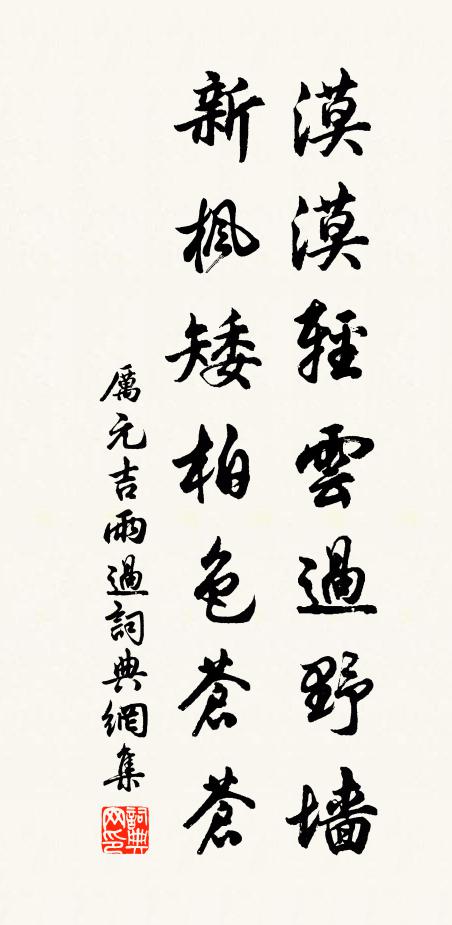 漠漠輕雲過野墙
新楓矮柏色蒼蒼
厲元吉雨過詞典網集
詞典网印